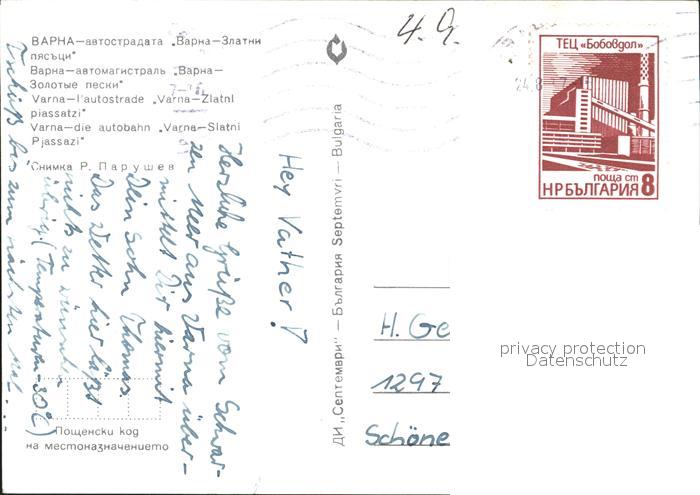 ВАРНА—автострадата „Варна-Златни
пясъци"
Варна—автомагистраль „Варна—
Золотые пески"
Varna—l'autostrade „Varna—Zlatni
piassatzi"
Varna—die autobahn „Varna—Slatni
Pjassazi"
Снимка Р. Парушев
Hey Vather!
Herzliche Grüße vom Schwar-
zen Meer aus Varna über-
mittelt Dir hiermit
Dein Sohn Thomas.
Das Wetter hier läßt
nichts zu wünschen
übrig. (Temperaturen - 30°C)
Tschüß bis zum nächsten Mal.
Пощенски код
на местоназначението
ДИ „Септември" — България Septemvri — Bulgaria
4. 9.
24.8
ТЕЦ «Бобовдол»
поща ст
НР БЪЛГАРИЯ 8
H. Ge
1297
Schöne
privacy protection
Datenschutz